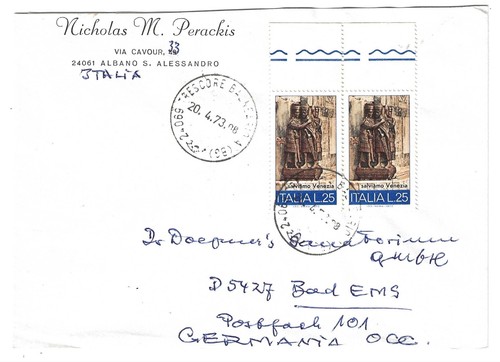 Nicholas M. Perackis
VIA CAVOUR, 33
24061 ALBANO S. ALESSANDRO
ITALIA
TRESCORE
20.4.73.08
(BG)
salviamo Venezia
ITALIA L.25
salviamo Venezia
ITALIA L.25
Dr Doepner's Sanatorium
GmbH
D5427 Bad EMS
Postfach 101
GERMANIA OCC.